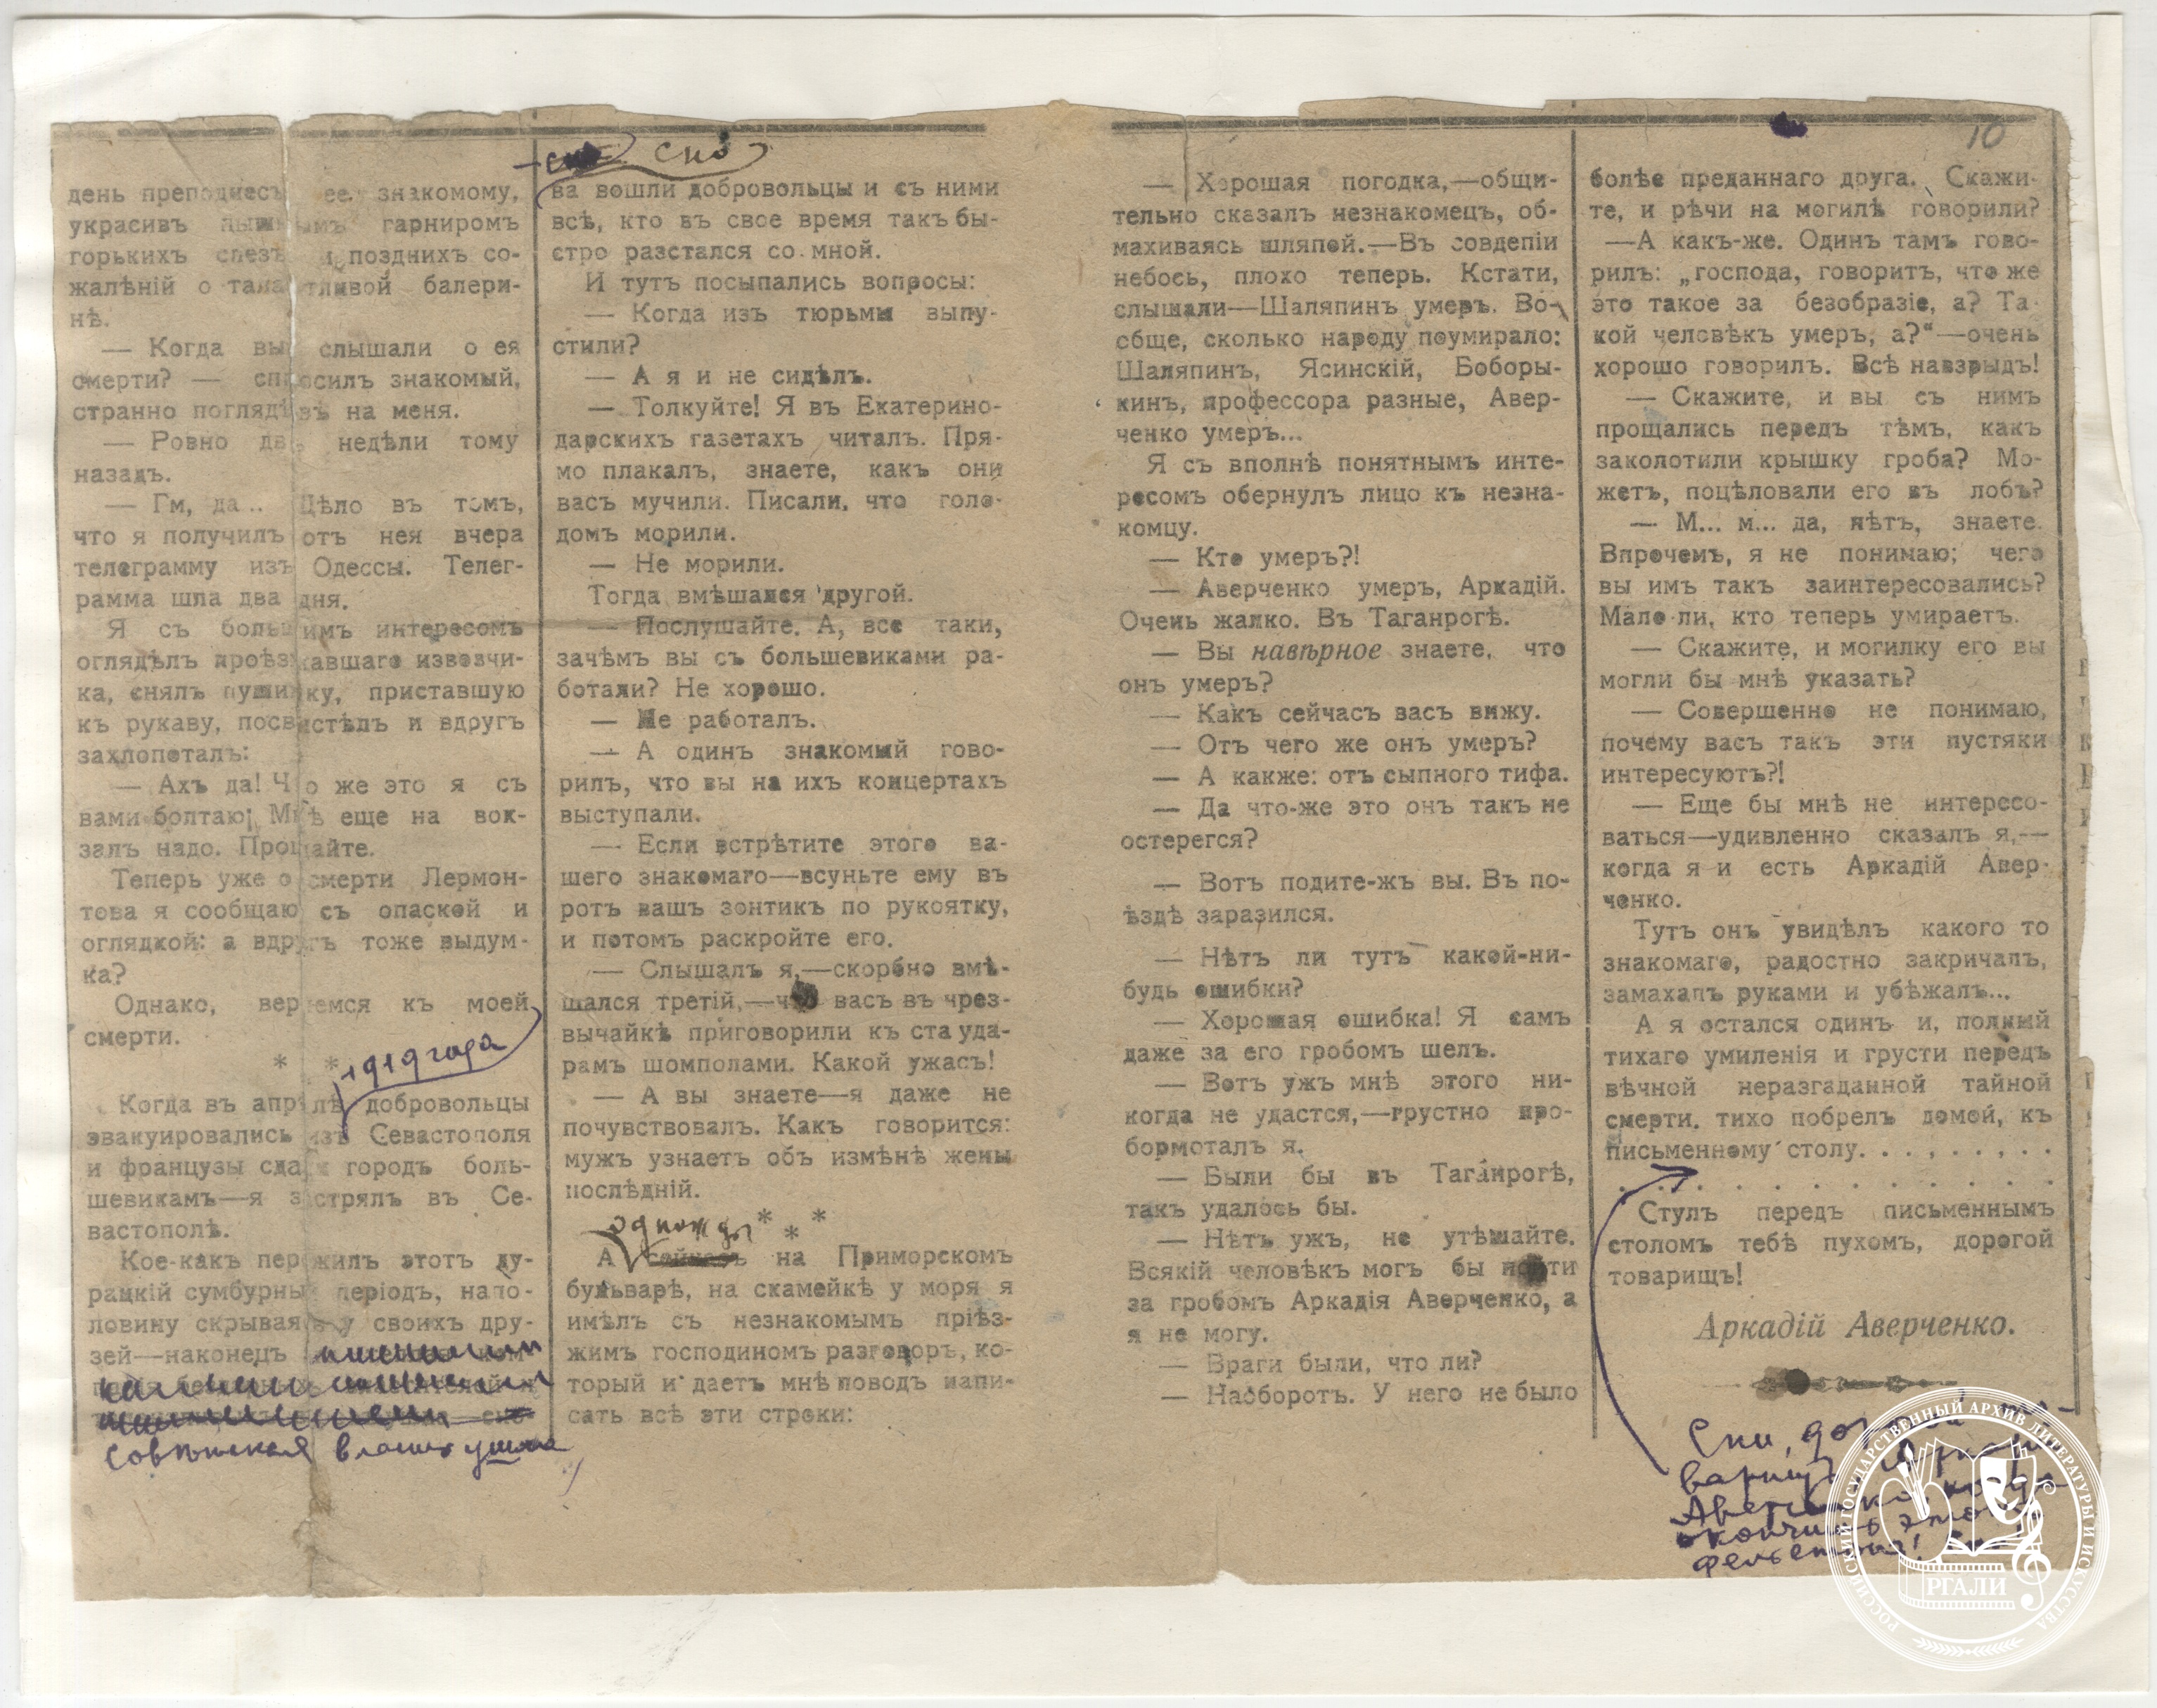 10
день преподнесъ ее знакомому,
украсивъ пышнымъ гарниромъ
горькихъ слезъ и позднихъ со-
жалѣній о талантливой балери-
нѣ.
— Когда вы слышали о ея
смерти? — спросилъ знакомый,
странно поглядѣвъ на меня.
— Ровно двѣ недѣли тому
назадъ.
— Гм, да... Дѣло въ томъ,
что я получилъ отъ нея вчера
телеграмму изъ Одессы. Телег-
рамма шла два дня.
Я съ большимъ интересомъ
оглядѣлъ проѣзжавшаго извозчи-
ка, снялъ пушинку, приставшую
къ рукаву, посвистѣлъ и вдругъ
захлопоталъ:
— Ахъ да! Что же это я съ
вами болтаю! Мнѣ еще на вок-
залъ надо. Прощайте.
Теперь уже о смерти Лермон-
това я сообщаю съ опаской и
оглядкой: а вдругъ тоже выдум-
ка?
Однако, вернемся къ моей
смерти.
* *
1919 года
Когда въ апрѣлѣ добровольцы
эвакуировались изъ Севастополя
и французы сдали городъ боль-
шевикамъ—я застрялъ въ Се-
вастополѣ.
Кое-какъ пережилъ этотъ ду-
рацкій сумбурный періодъ, напо-
ловину скрываясь у своихъ дру-
зей—наконецъ
совѣтская власть ушла
сно
ва вошли добровольцы и съ ними
всѣ, кто въ свое время такъ бы-
стро разстался со мной.
И тутъ посыпались вопросы:
— Когда изъ тюрьмы выпу-
стили?
— А я и не сидѣлъ.
— Толкуйте! Я въ Екатерино-
дарскихъ газетахъ читалъ. Пря-
мо плакалъ, знаете, какъ они
васъ мучили. Писали, что голо-
домъ морили.
— Не морили.
Тогда вмѣшался другой.
— Послушайте. А, все таки,
зачѣмъ вы съ большевиками ра-
ботали? Не хорошо.
— Не работалъ.
— А одинъ знакомый гово-
рилъ, что вы на ихъ концертахъ
выступали.
— Если встрѣтите этого ва-
шего знакомаго—всуньте ему въ
ротъ вашъ зонтикъ по рукоятку,
и потомъ раскройте его.
— Слышалъ я,—скорбно вмѣ-
шался третій,—что васъ въ чрез-
вычайкѣ приговорили къ ста уда-
рамъ шомполами. Какой ужасъ!
— А вы знаете—я даже не
почувствовалъ. Какъ говорится:
мужъ узнаетъ объ измѣнѣ жены
послѣдній.
* * *
однажды
А сейчасъ на Приморскомъ
бульварѣ, на скамейкѣ у моря я
имѣлъ съ незнакомымъ пріѣз-
жимъ господиномъ разговоръ, ко-
торый и даетъ мнѣ поводъ напи-
сать всѣ эти строки:
— Хорошая погодка,—общи-
тельно сказалъ незнакомецъ, об-
махиваясь шляпой.—Въ совдепіи
небось, плохо теперь. Кстати,
слышали—Шаляпинъ умеръ. Во-
обще, сколько народу поумирало:
Шаляпинъ, Ясинскій, Боборы-
кинъ, профессора разные, Авер-
ченко умеръ...
Я съ вполнѣ понятнымъ инте-
ресомъ обернулъ лицо къ незна-
комцу.
— Кто умеръ?!
— Аверченко умеръ, Аркадій.
Очень жалко. Въ Таганрогѣ.
— Вы навѣрное знаете, что
онъ умеръ?
— Какъ сейчасъ васъ вижу.
— Отъ чего же онъ умеръ?
— А какже: отъ сыпного тифа.
— Да что-же это онъ такъ не
остерегся?
— Вотъ подите-жъ вы. Въ по-
ѣздѣ заразился.
— Нѣтъ ли тутъ какой-ни-
будь ошибки?
— Хорошая ошибка! Я самъ
даже за его гробомъ шелъ.
— Вотъ ужъ мнѣ этого ни-
когда не удастся,—грустно про-
бормоталъ я.
— Были бы въ Таганрогѣ,
такъ удалось бы.
— Нѣтъ ужъ, не утѣшайте.
Всякій человѣкъ могъ бы пойти
за гробомъ Аркадія Аверченко, а
я не могу.
— Враги были, что ли?
— Наоборотъ. У него не было
болѣе преданнаго друга. Скажи-
те, и рѣчи на могилѣ говорили?
—А какъ-же. Одинъ тамъ гово-
рилъ: „господа, говоритъ, что же
это такое за безобразіе, а? Та-
кой человѣкъ умеръ, а?“—очень
хорошо говорилъ. Всѣ навзрыдъ!
— Скажите, и вы съ нимъ
прощались передъ тѣмъ, какъ
заколотили крышку гроба? Мо-
жетъ, поцѣловали его въ лобъ?
— М... м... да, нѣтъ, знаете.
Впрочемъ, я не понимаю; чего
вы имъ такъ заинтересовались?
Мало ли, кто теперь умираетъ.
— Скажите, и могилку его вы
могли бы мнѣ указать?
— Совершенно не понимаю,
почему васъ такъ эти пустяки
интересуютъ?!
— Еще бы мнѣ не интересо-
ваться—удивленно сказалъ я,—
когда я и есть Аркадій Авер-
ченко.
Тутъ онъ увидѣлъ какого то
знакомаго, радостно закричалъ,
замахалъ руками и убѣжалъ...
А я остался одинъ и, полный
тихаго умиленія и грусти передъ
вѣчной неразгаданной тайной
смерти, тихо побрелъ домой, къ
письменному столу. . . . . . . . .
. . . . . . . . . . . . .
Стулъ передъ письменнымъ
столомъ тебѣ пухомъ, дорогой
товарищъ!
Аркадій Аверченко.
Спи, дорогой то-
варищ Аркадій
Аверченко, когда
окончишь этотъ
фельетонъ!
РОССИЙСКИЙ ГОСУДАРСТВЕННЫЙ АРХИВ ЛИТЕРАТУРЫ И ИСКУССТВА
РГАЛИ